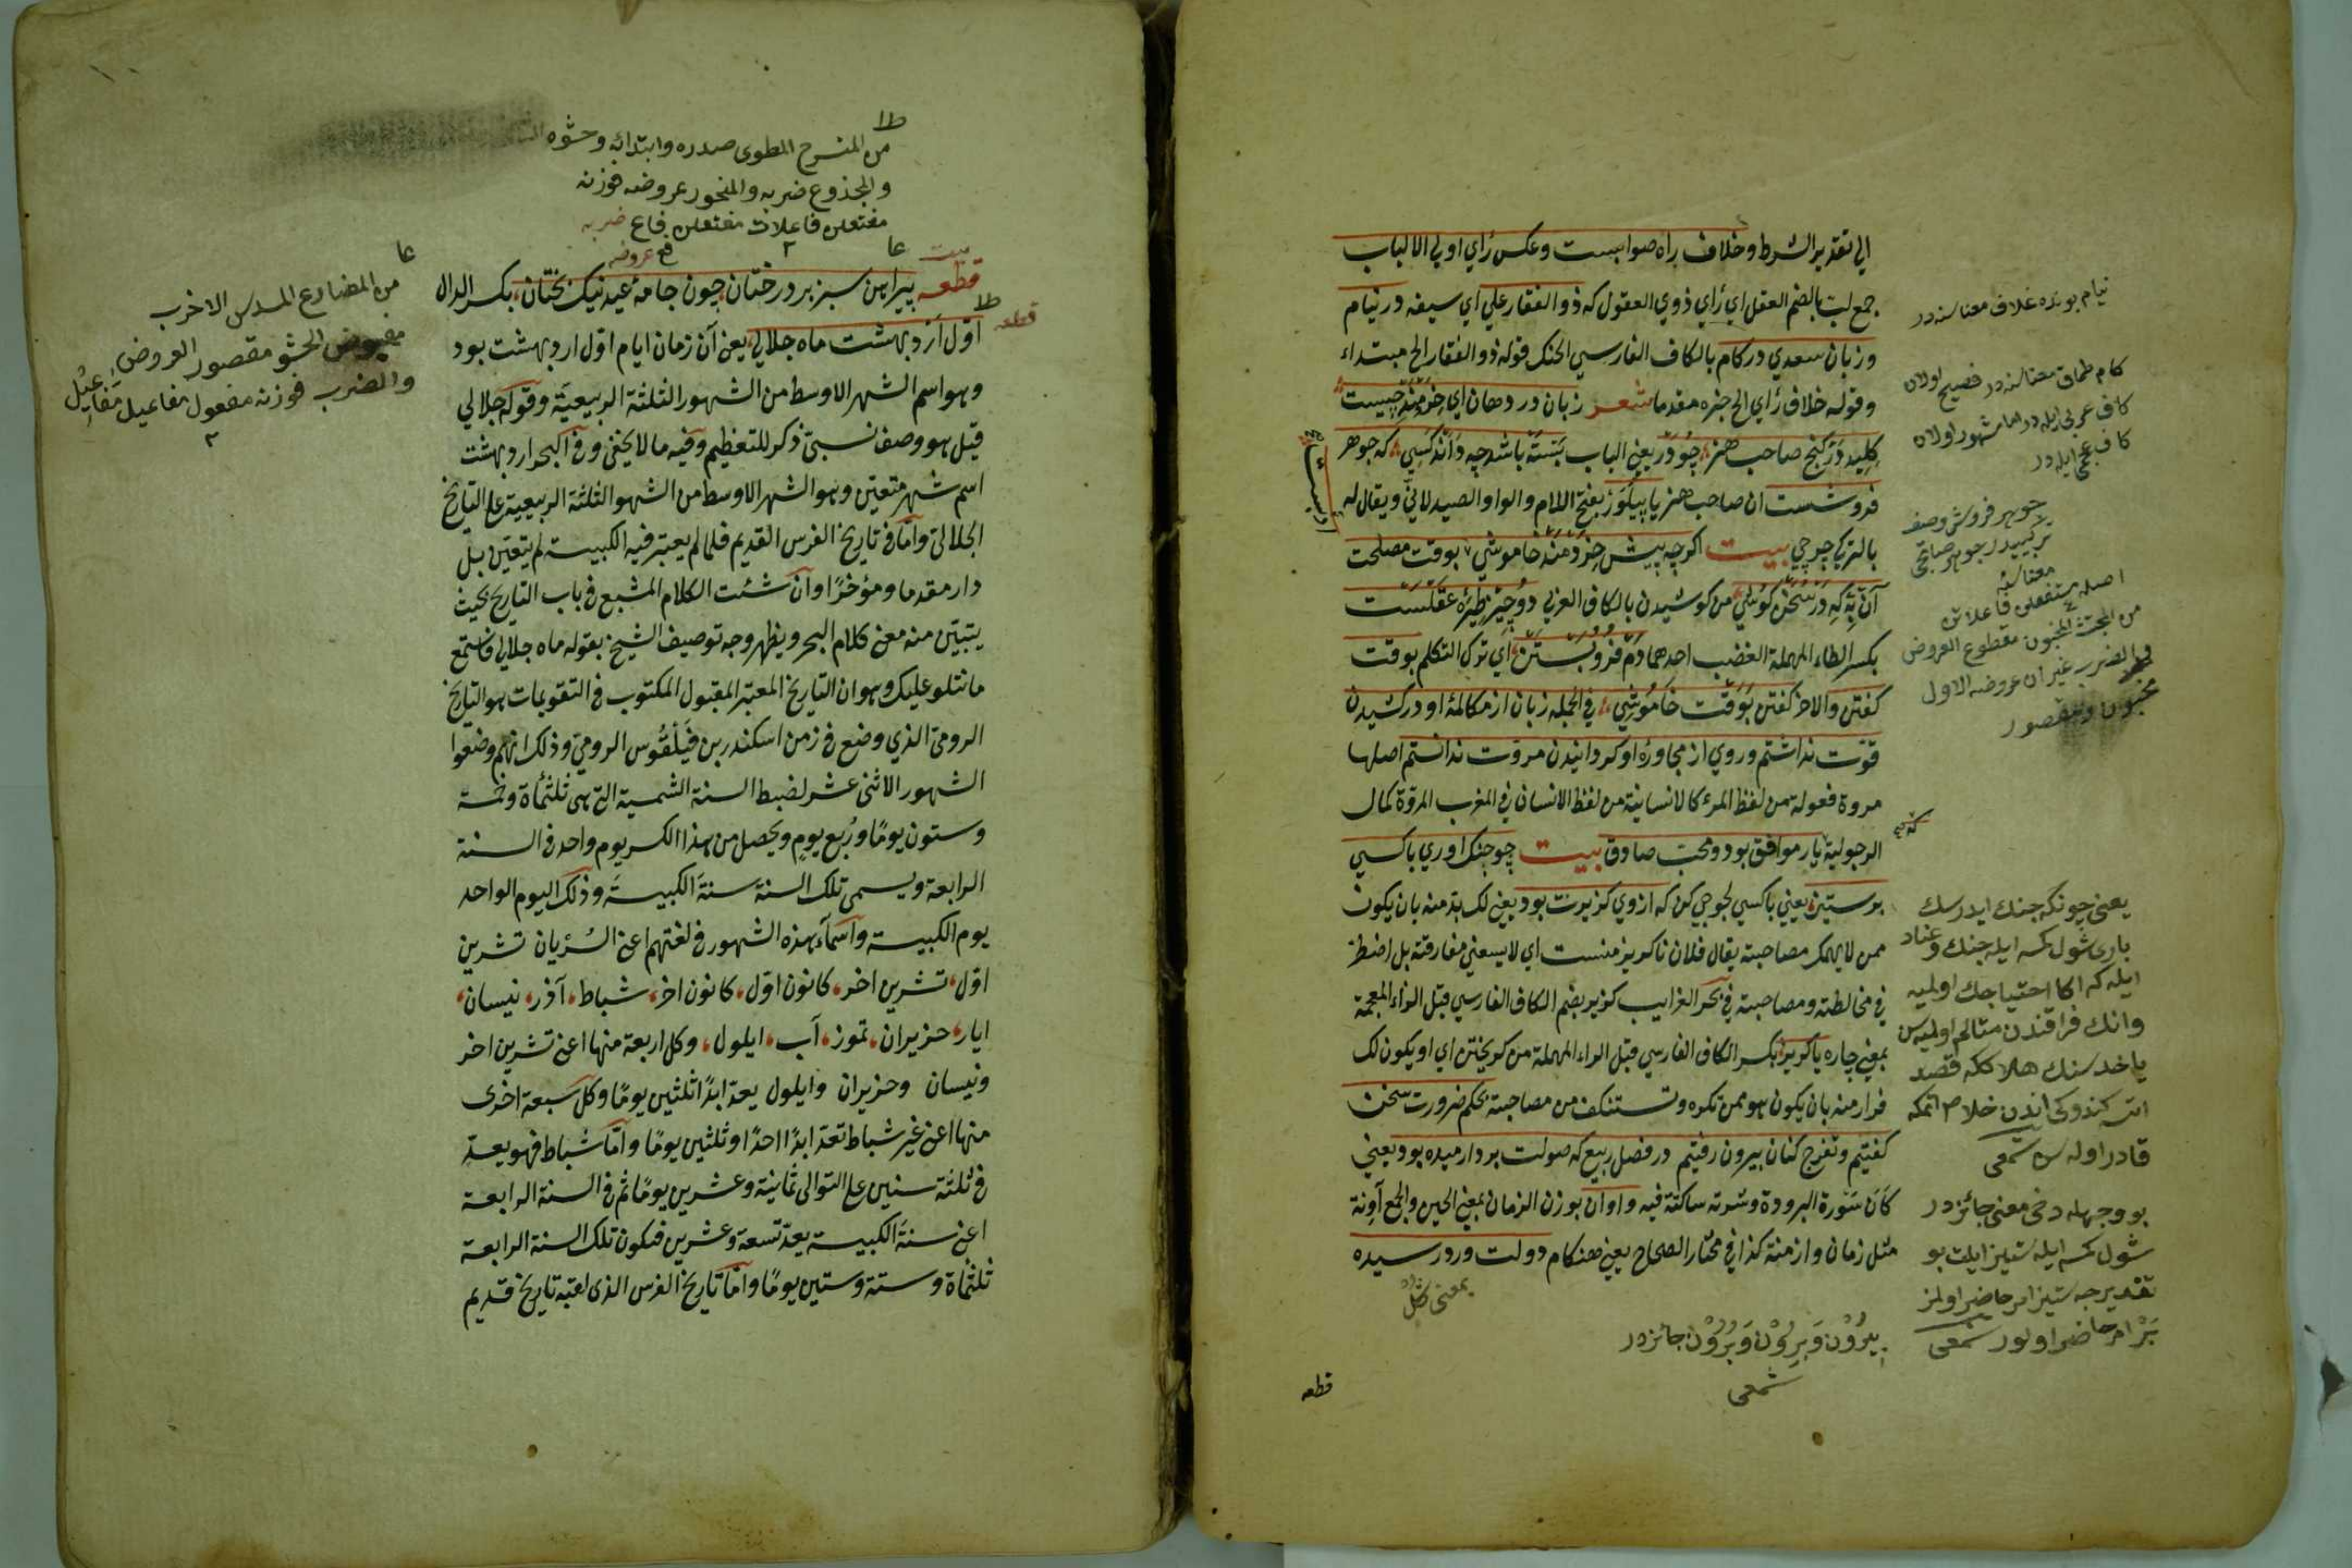 الي تقدير الشرط وخلاف راه صوابست وعكس رأي اولي الالباب
جمع لب بالضم العقل اي رأي ذوي العقول كه ذو الفقار علي اي سيفه در نيام
وزبان سعدي در كام بالكاف الفارسي الحنك قوله ذو الفقار الخ مبتداء
وقوله خلاف رأي الخ خبره مقدما شعر زبان در دهان اي خردمند چيست
كليد در گنج صاحب هنر چو در يعني الباب بسته باشد چه داند كسي كه جوهر
فروشست ان صاحب هنر يا پيلور بفتح اللام والواو الصيدلاني ويقال له
بالتركي چرچي بيت اكرچه پيش خردمند خاموشي بوقت مصلحت
آن به كه در سخن كوشي من كوشيدن بالكاف العربي دو چيز طيره عقلست
بكسر الطاء المهملة الغضب احدهما دم فرو بستن اي ترك التكلم بوقت
گفتن والاخر گفتن بوقت خاموشي في الجمله زبان از مكالمۀ او در كشيدن
قوت نداشتم وروي از مجاورۀ او كردانيدن مروت ندانستم اصلها
مروة فعولة من لفظ المرء كالانسانية من لفظ الانسان في المغرب المروة كمال
الرجولية يار موافق بود ومحب صادق بيت چو جنك اوري با كسي
بر ستيز يعني با كسي لجوجي كن كه ازوي گزيرت بود يعني لك بد منه بان يكون
ممن لا يهمك مصاحبته يقال فلان ناكزير منست اي لا يسعني مفارقته بل اضطر
في مخالطته ومصاحبته في بحر الغرايب گزير بضم الكاف الفارسي قبل الزاء المعجمة
بمعني چاره يا گريز بكسر الكاف الفارسي قبل الراء المهملة من گريختن اي او يكون لك
فرار منه بان يكون هو ممن تكره وتستنكف من مصاحبته بحكم ضرورت سخن
گفتيم وتفرج كنان بيرون رفتيم در فصل ربيع كه صولت برد ارميده بود يعني
كان سورة البرودة وشدته ساكتة فيه واوان بوزن الزمان بمعني الحين والجمع آونة
مثل زمان وازمنة كذا في مختار الصحاح يعني هنكام دولت ورد رسيده
قطعه
نيام بونده غلاف معناسنه در
كام طماق معناسنه در فصيح اولان
كاف عربي ايله در اما مشهور اولان
كاف عجمي ايله در
جوهر فروش وصف
تركيبيدر جوهر صاتجي
معناسنه
اصله مستفعلن فاعلاتن
من المجتث المخبون مقطوع العروض
والضرب غير ان عروضه الاول
مخبون ومقصور
يعني چونكه جنك ايدرسك
باري شول كمسه ايله جنك وعناد
ايله كه اكا احتياجك اولميه
وانك فراقندن متالم اولميه سن
ياخد سنك هلاككه قصد
اتسه كندوكي اندن خلاص اتمكه
قادر اوله سن شمعي
بو وجهله دخي معني جائزدر
شول كمسه ايله ستيز ايلت بو
تقديرجه ستيز امر حاضر اولمز
بر امر حاضر اولور شمعي
بيرون وبرون وبرون جائزدر
شمعي
من المنسرح المطوي صدره وابتدائه وحشوه
والمجذوع ضربه والمنحور عروضه فوزنه
مفتعلن فاعلات مفتعلن فاع ضربه
فع عروضه
قطعه پيراهن سبز بر درختان چون جامۀ عيد نيك بختان بكسر الدال
اول ارد بهشت ماه جلالي يعني آن زمان ايام اول ارد بهشت بود
وهو اسم الشهر الاوسط من الشهور الثلثة الربيعية وقوله جلالي
قيل هو وصف نسبي ذكر للتعظيم وفيه ما لا يخفى وفي البحر ارد بهشت
اسم شهر متعين وهو الشهر الاوسط من الشهو الثلثة الربيعية على التاريخ
الجلالي واما في تاريخ الفرس القديم فلما لم يعتبر فيه الكبيسة لم يتعين بل
دار مقدما ومؤخرا وان شئت الكلام المشبع في باب التاريخ بحيث
يتبين منه معنى كلام البحر ويظهر وجه توصيف الشيخ بقوله ماه جلالي فاستمع
ما نتلو عليك وهو ان التاريخ المعتبر المقبول المكتوب في التقويمات هو التاريخ
الرومي الذي وضع في زمن اسكندر بن فيلقوس الرومي وذلك انهم وضعوا
الشهور الاثنى عشر لضبط السنة الشمسية التي هي ثلثمأة وخمسة
وستون يوما وربع يوم ويحصل من هذا الكسر يوم واحد في السنة
الرابعة ويسمى تلك السنة سنة الكبيسة وذلك اليوم الواحد
يوم الكبيسة واسماء هذه الشهور في لغتهم اعنى السريان تشرين
اول تشرين اخر كانون اول كانون اخر شباط آذر نيسان
ايار حزيران تموز آب ايلول وكل اربعة منها اعنى تشرين اخر
ونيسان وحزيران وايلول يعد ابدا ثلثين يوما وكل سبعة اخرى
منها اعنى غير شباط تعد ابدا احدا وثلثين يوما واما شباط فهو يعد
في ثلثة سنين على التوالي ثمانية وعشرين يوما ثم في السنة الرابعة
اعنى سنة الكبيسة يعد تسعة وعشرين فتكون تلك السنة الرابعة
ثلثمأة وستة وستين يوما واما تاريخ الفرس الذي لقبه تاريخ قديم
من المضارع المسدس الاخرب
مقبوض الحشو مقصور العروض
والضرب فوزنه مفعول مفاعيل مفاعيل